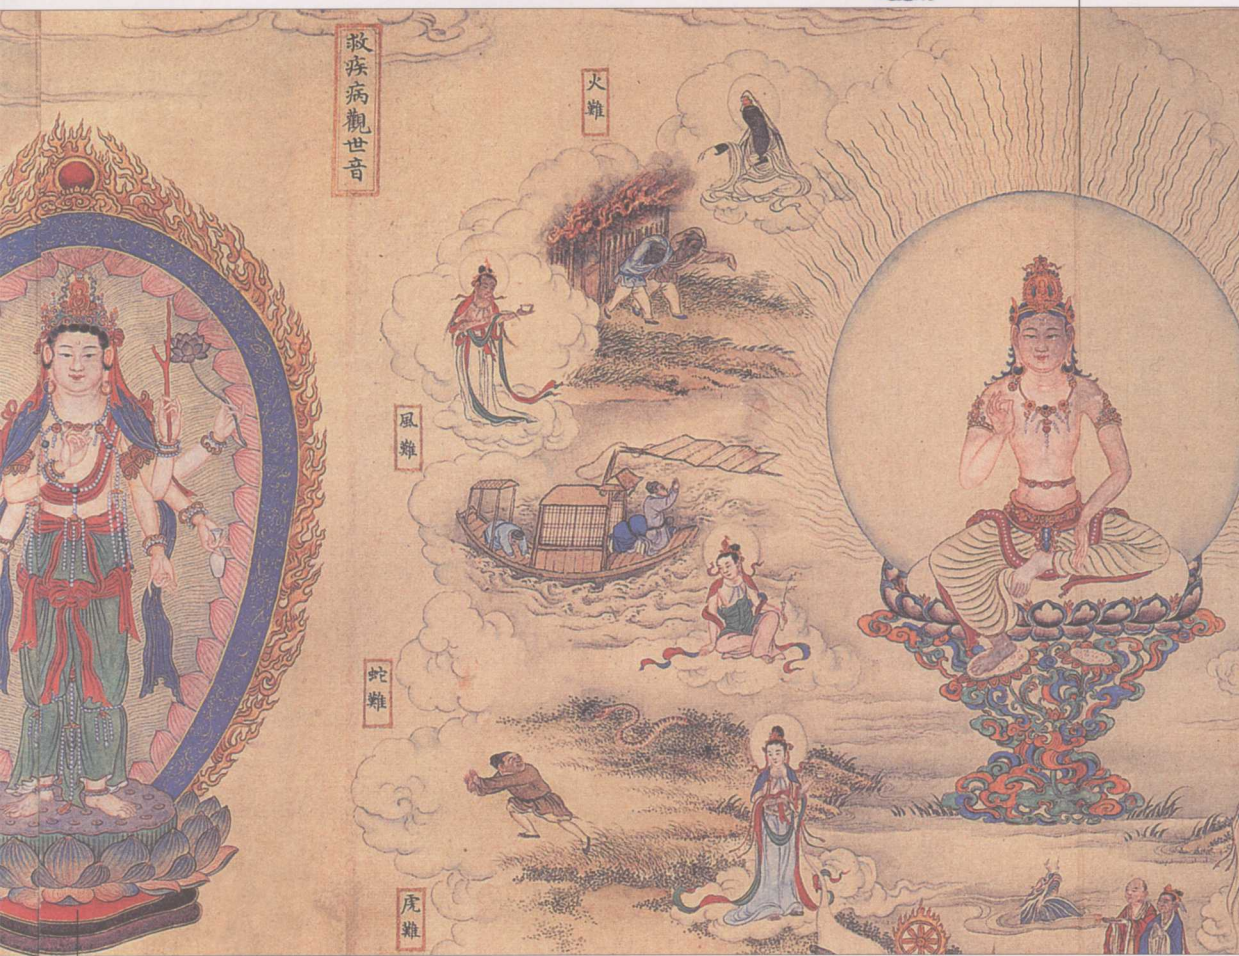 救疾病觀世音
火難
風難
蛇難
虎難